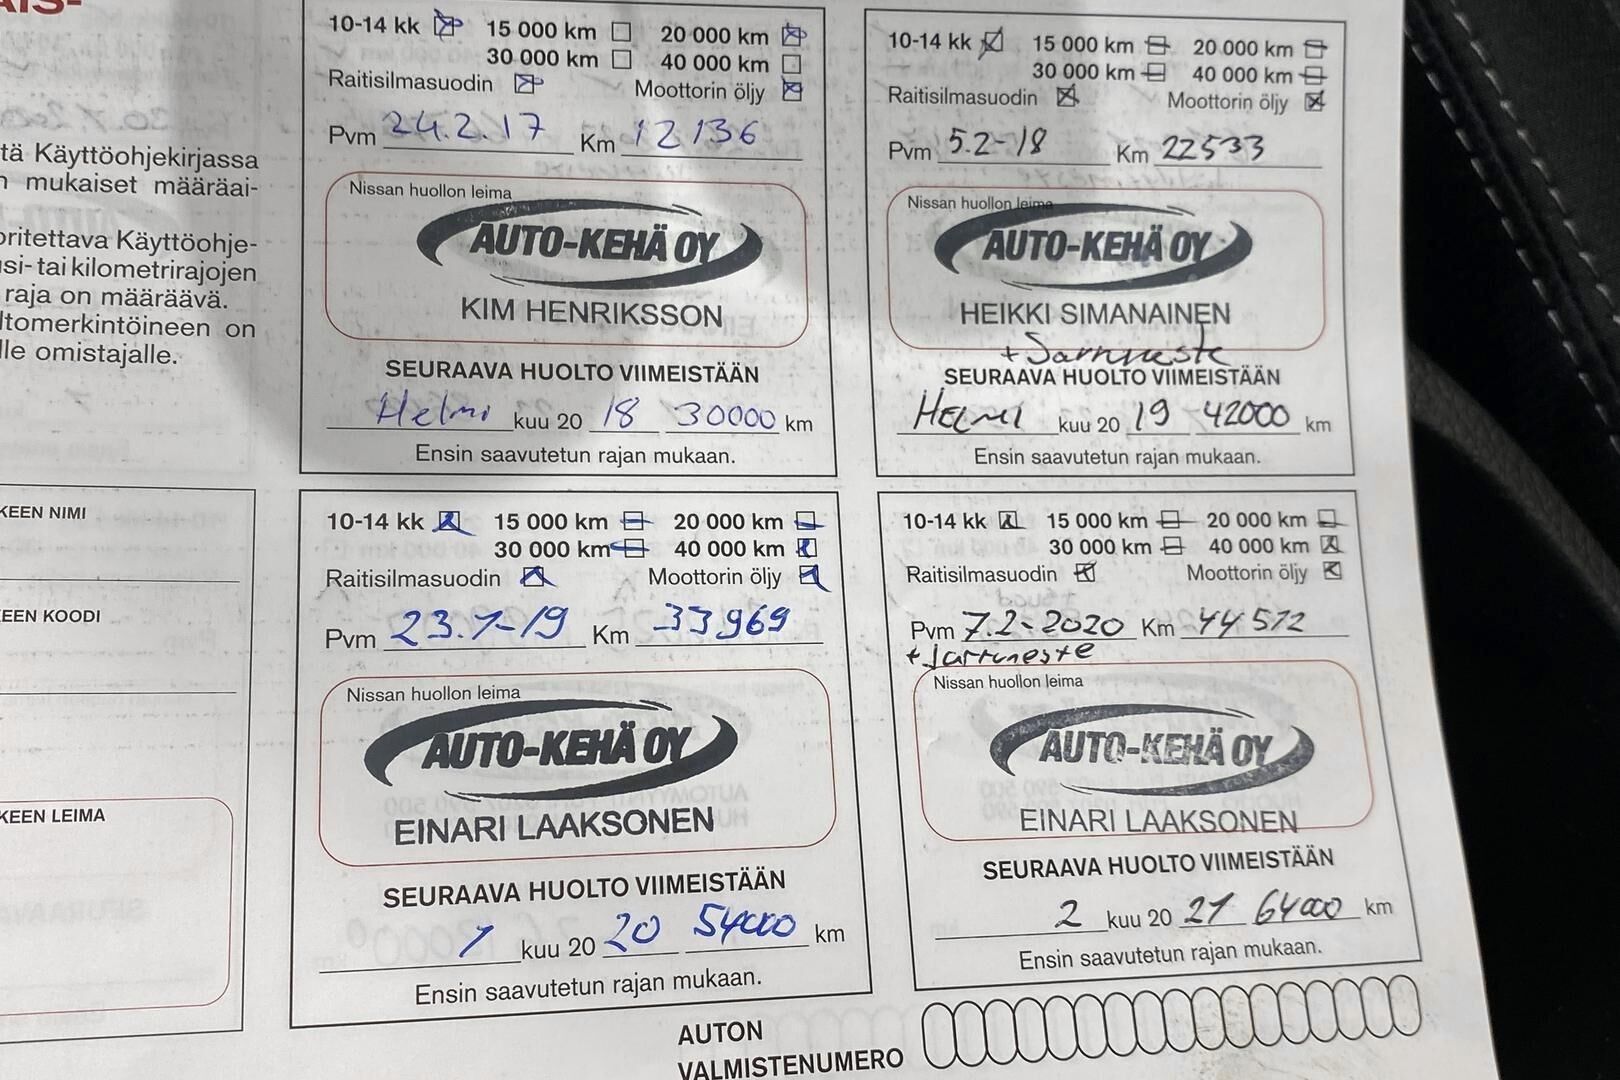 AIS-
tä Käyttöohjekirjassa
n mukaiset määräai-
oritettava Käyttöohje-
usi- tai kilometrirajojen
raja on määräävä.
ltomerkintöineen on
lle omistajalle.
KEEN NIMI
KEEN KOODI
KEEN LEIMA
10-14 kk 15 000 km 20 000 km
30 000 km 40 000 km
Raitisilmasuodin Moottorin öljy
Pvm 24.2.17 Km 12136
Nissan huollon leima
AUTO-KEHÄ OY
KIM HENRIKSSON
SEURAAVA HUOLTO VIIMEISTÄÄN
Helmi kuu 20 18 30000 km
Ensin saavutetun rajan mukaan.
10-14 kk 15 000 km 20 000 km
30 000 km 40 000 km
Raitisilmasuodin Moottorin öljy
Pvm 5.2-18 Km 22533
Nissan huollon leima
AUTO-KEHÄ OY
HEIKKI SIMANAINEN
+ Jarruneste
SEURAAVA HUOLTO VIIMEISTÄÄN
HELMI kuu 20 19 42000 km
Ensin saavutetun rajan mukaan.
10-14 kk 15 000 km 20 000 km
30 000 km 40 000 km
Raitisilmasuodin Moottorin öljy
Pvm 23.1-19 Km 33969
Nissan huollon leima
AUTO-KEHÄ OY
EINARI LAAKSONEN
SEURAAVA HUOLTO VIIMEISTÄÄN
1 kuu 20 20 54000 km
Ensin saavutetun rajan mukaan.
10-14 kk 15 000 km 20 000 km
30 000 km 40 000 km
Raitisilmasuodin Moottorin öljy
Pvm 7.2-2020 Km 44572
+ Jarruneste
Nissan huollon leima
AUTO-KEHÄ OY
EINARI LAAKSONEN
SEURAAVA HUOLTO VIIMEISTÄÄN
2 kuu 20 21 64000 km
Ensin saavutetun rajan mukaan.
AUTON
VALMISTENUMERO